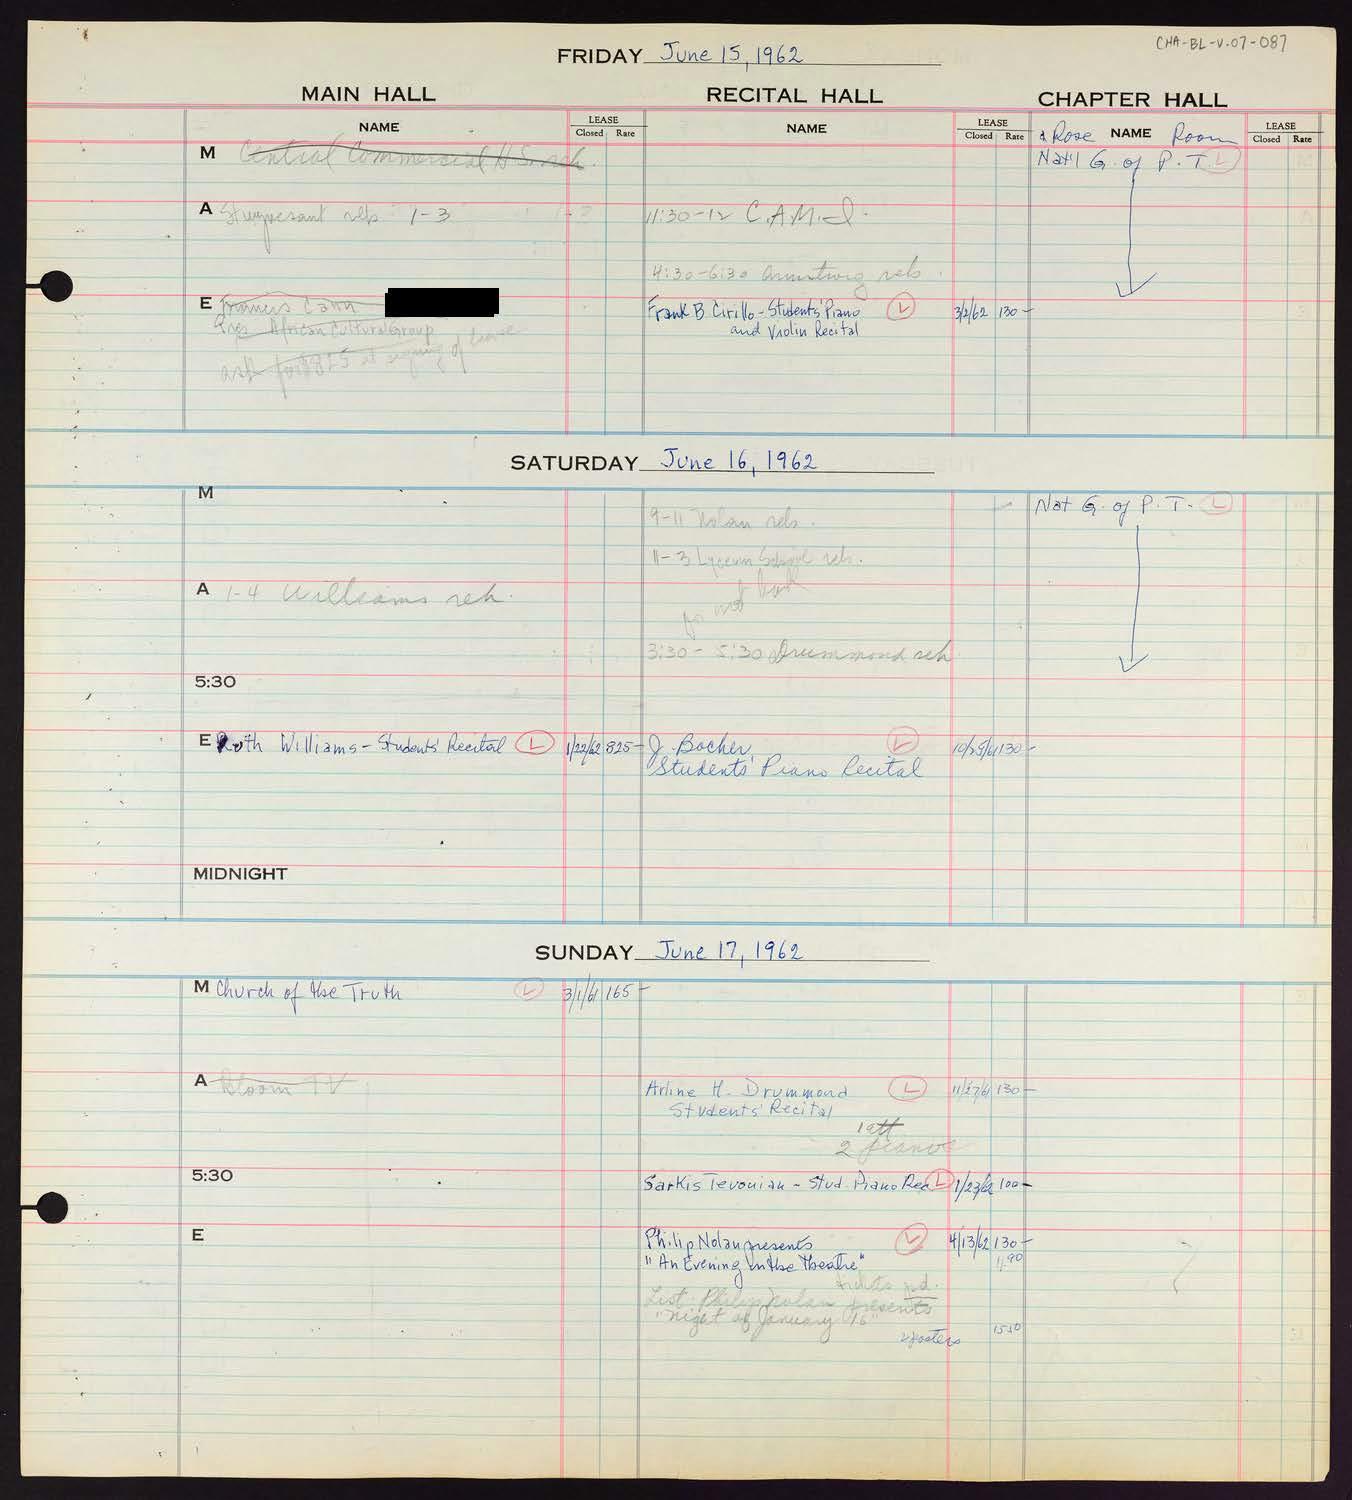 CHA-BL-V.07-087
FRIDAY June 15, 1962
MAIN HALL RECITAL HALL CHAPTER HALL
NAME LEASE Closed Rate NAME LEASE Closed Rate & Rose NAME Room LEASE Closed Rate
M Central Commercial H.S. reh. Nat'l G. of P. T. L
A Stuyvesant reh 1-3 11:30-12 C.A.M.I.
4:30-6:30 Armstrong reh.
E Francis Cann Frank B. Cirillo - Students' Piano L 3/2/62 130-
Pres. African Cultural Group and Violin Recital
ask for 825 at signing of lease
SATURDAY June 16, 1962
M Nat G. of P. T. L
9-11 Nolan reh.
11-3 Lyceum School reh.
do not book
A 1-4 Williams reh.
3:30-5:30 Drummond reh
5:30
E Ruth Williams - Students' Recital L 1/22/62 825- J. Bocher L 10/25/61 130-
Students' Piano Recital
MIDNIGHT
SUNDAY June 17, 1962
M Church of the Truth L 3/1/61 165-
A Bloom TV Arline H. Drummond L 11/27/61 130-
Students' Recital
1 att
2 pianos
5:30 Sarkis Tevonian - Stud. Piano Rec L 1/23/62 100-
E Philip Nolan presents L 4/13/62 130-
"An Evening in the Theatre" 11.90
tickets pd.
List: Philip Nolan presents
"Night of January 16"
2 posters 15.50